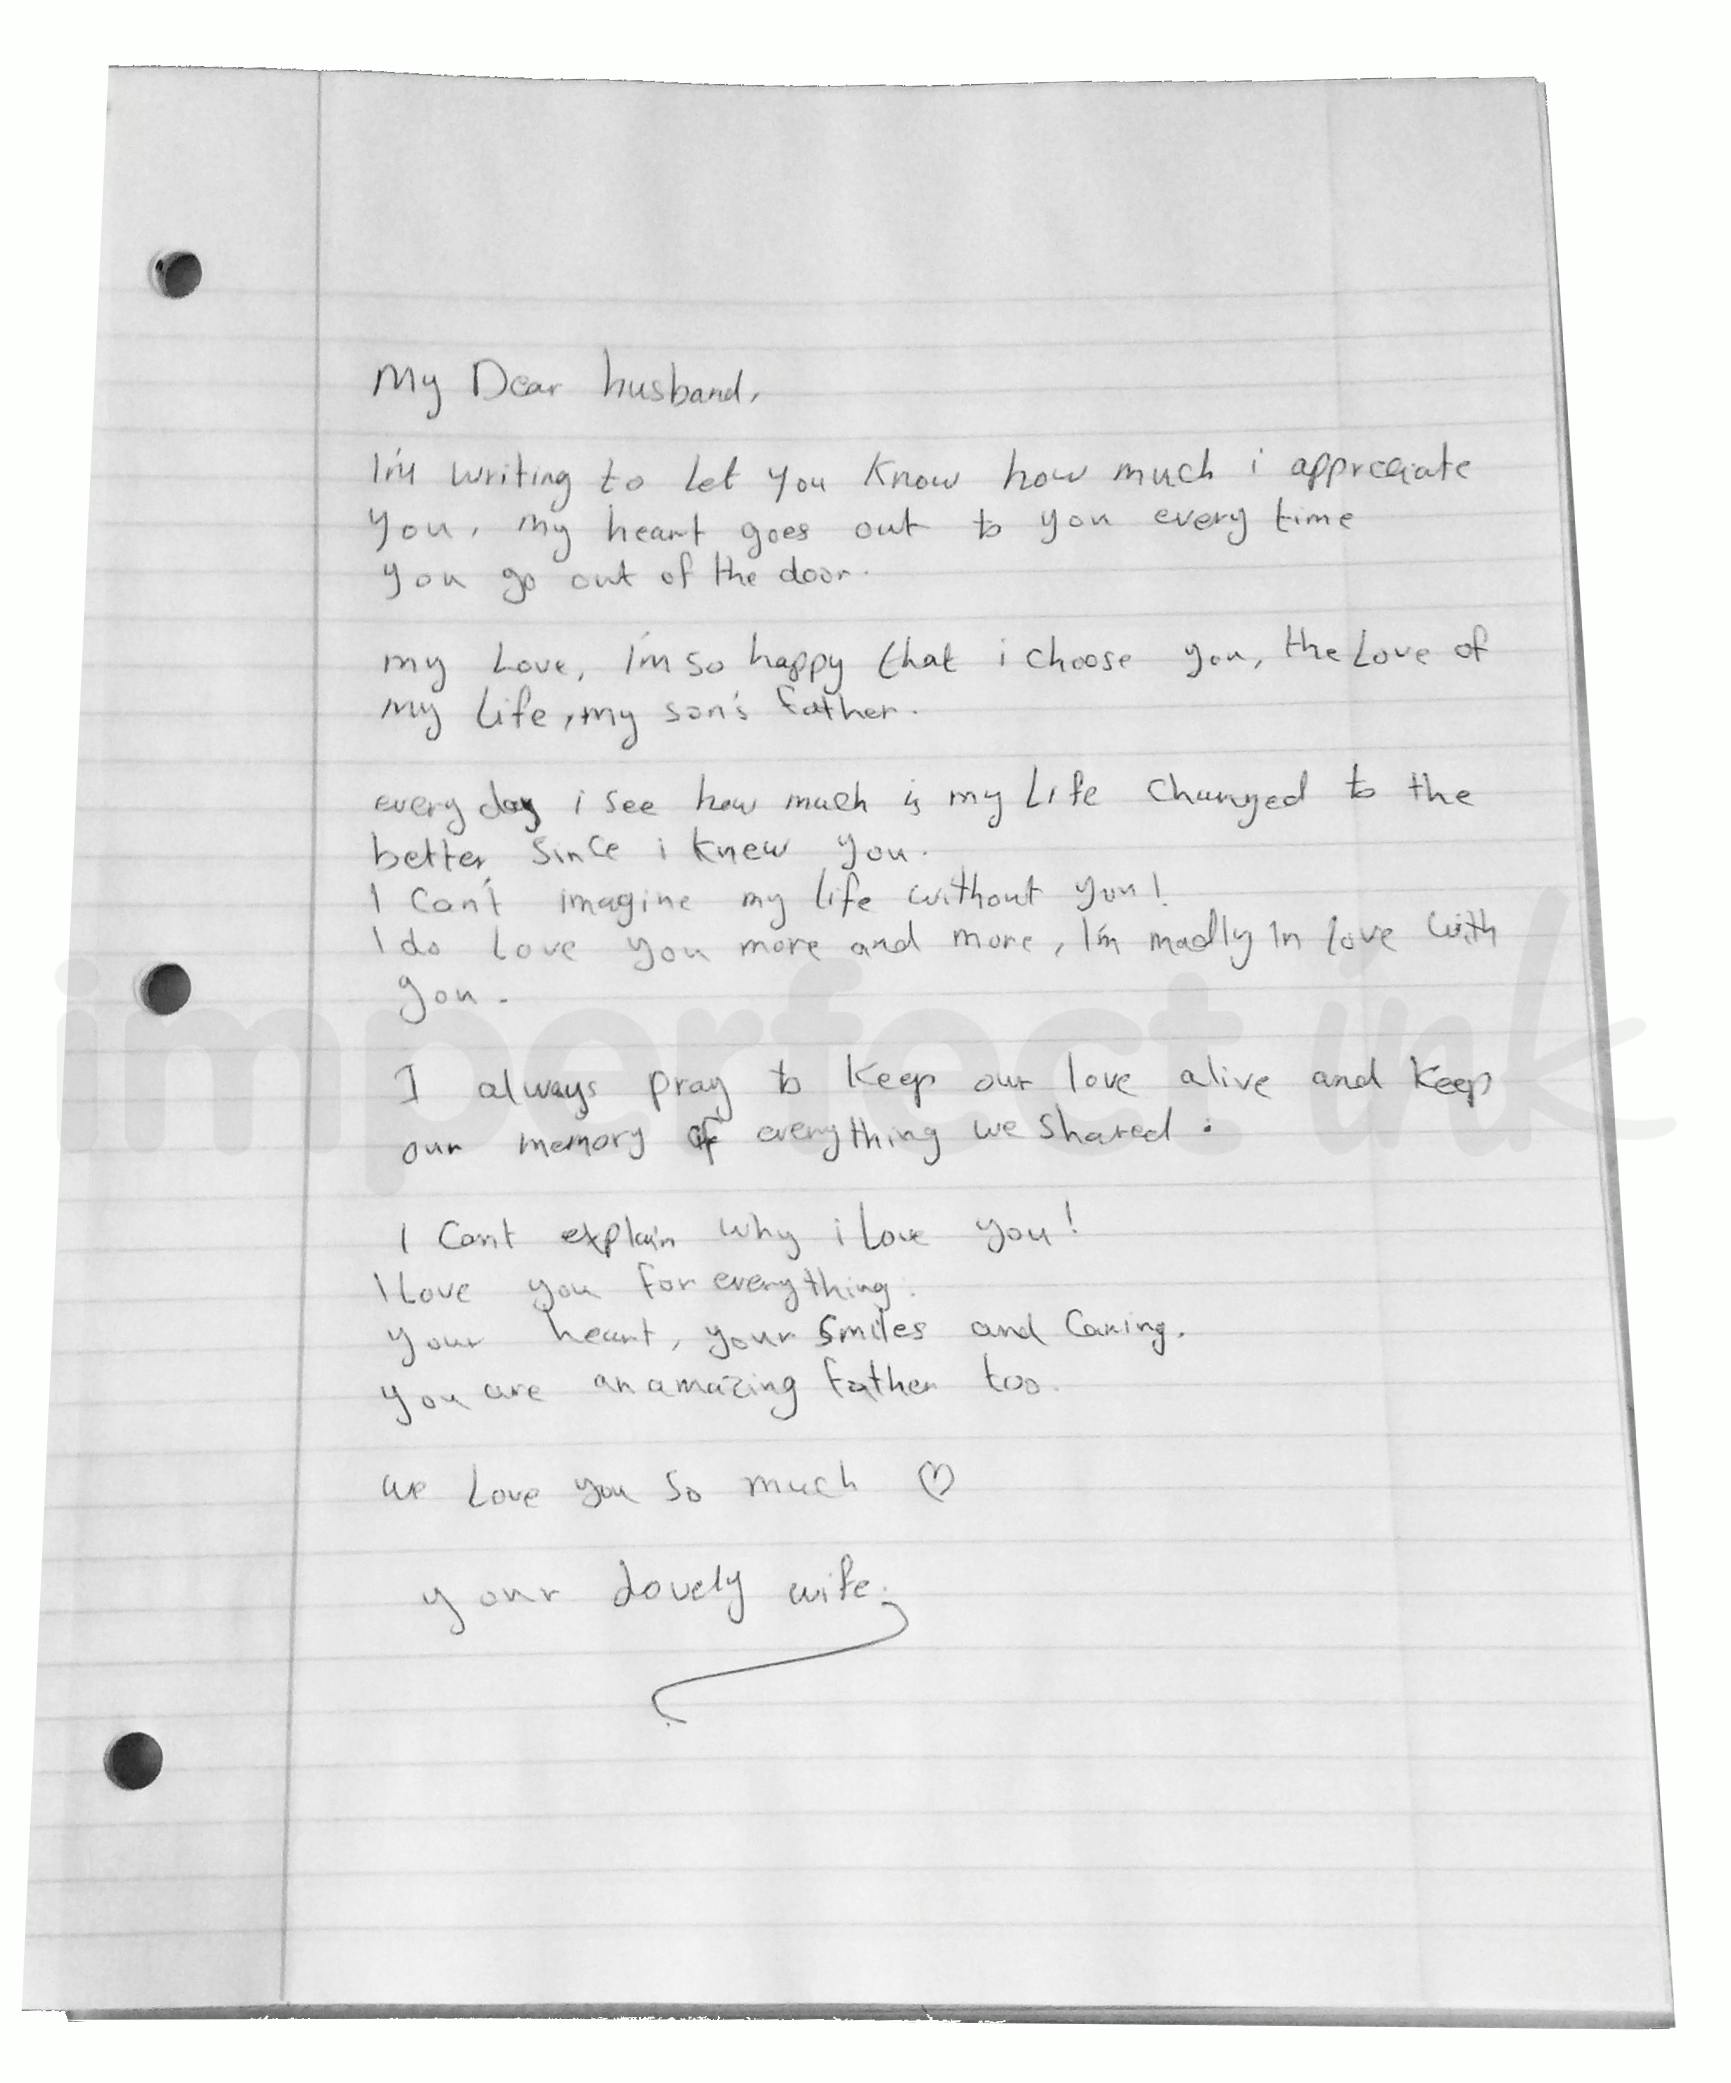 My Dear husband,
I'm writing to let you know how much i appreciate
you, my heart goes out to you every time
you go out of the door.
my Love, I'm so happy that i choose you, the Love of
my Life, my son's father.
every day i see how much is my Life changed to the
better, since i knew you.
I can't imagine my life without you!
I do Love you more and more, I'm madly in love with
you.
I always pray to keep our love alive and keep
our memory of everything we shared.
I can't explain why i Love you!
I Love you for everything.
your heart, your smiles and caring.
you are an amazing father too.
we Love you so much ♡
your Lovely wife.
imperfect ink